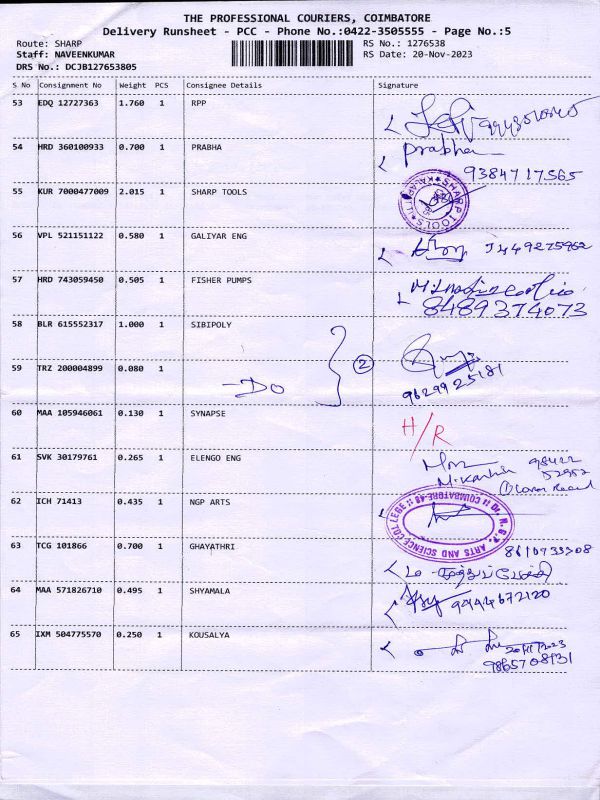 THE PROFESSIONAL COURIERS, COIMBATORE
Delivery Runsheet - PCC - Phone No.:0422-3505555 - Page No.:5
Route: SHARP
Staff: NAVEENKUMAR
DRS No.: DCJB127653805
RS No.: 1276538
RS Date: 20-Nov-2023
S No Consignment No Weight PCS Consignee Details Signature
53 EDQ 12727363 1.760 1 RPP
54 HRD 360100933 0.700 1 PRABHA prabha 9384717565
55 KUR 7000477009 2.015 1 SHARP TOOLS SHARP TOOLS
56 VPL 521151122 0.580 1 GALIYAR ENG
57 HRD 743059450 0.505 1 FISHER PUMPS 8489374073
58 BLR 615552317 1.000 1 SIBIPOLY
59 TRZ 200004899 0.080 1 -Do 2 9629925181
60 MAA 105946061 0.130 1 SYNAPSE H/R
61 SVK 30179761 0.265 1 ELENGO ENG
62 ICH 71413 0.435 1 NGP ARTS Dr. N. G. ARTS AND SCIENCE COLLEGE COIMBATORE-48
63 TCG 101866 0.700 1 GHAYATHRI
64 MAA 571826710 0.495 1 SHYAMALA 9944672120
65 IXM 504775570 0.250 1 KOUSALYA 20/11/2023